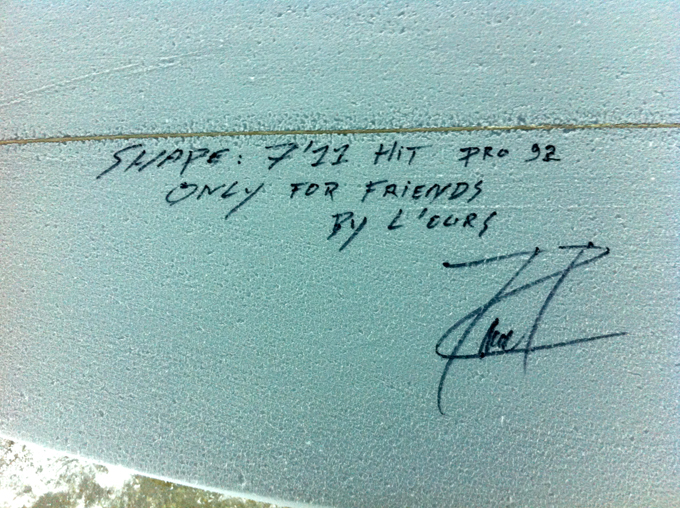 SHAPE: 7'11 HIT PRO 92
ONLY FOR FRIENDS
By L'OURS